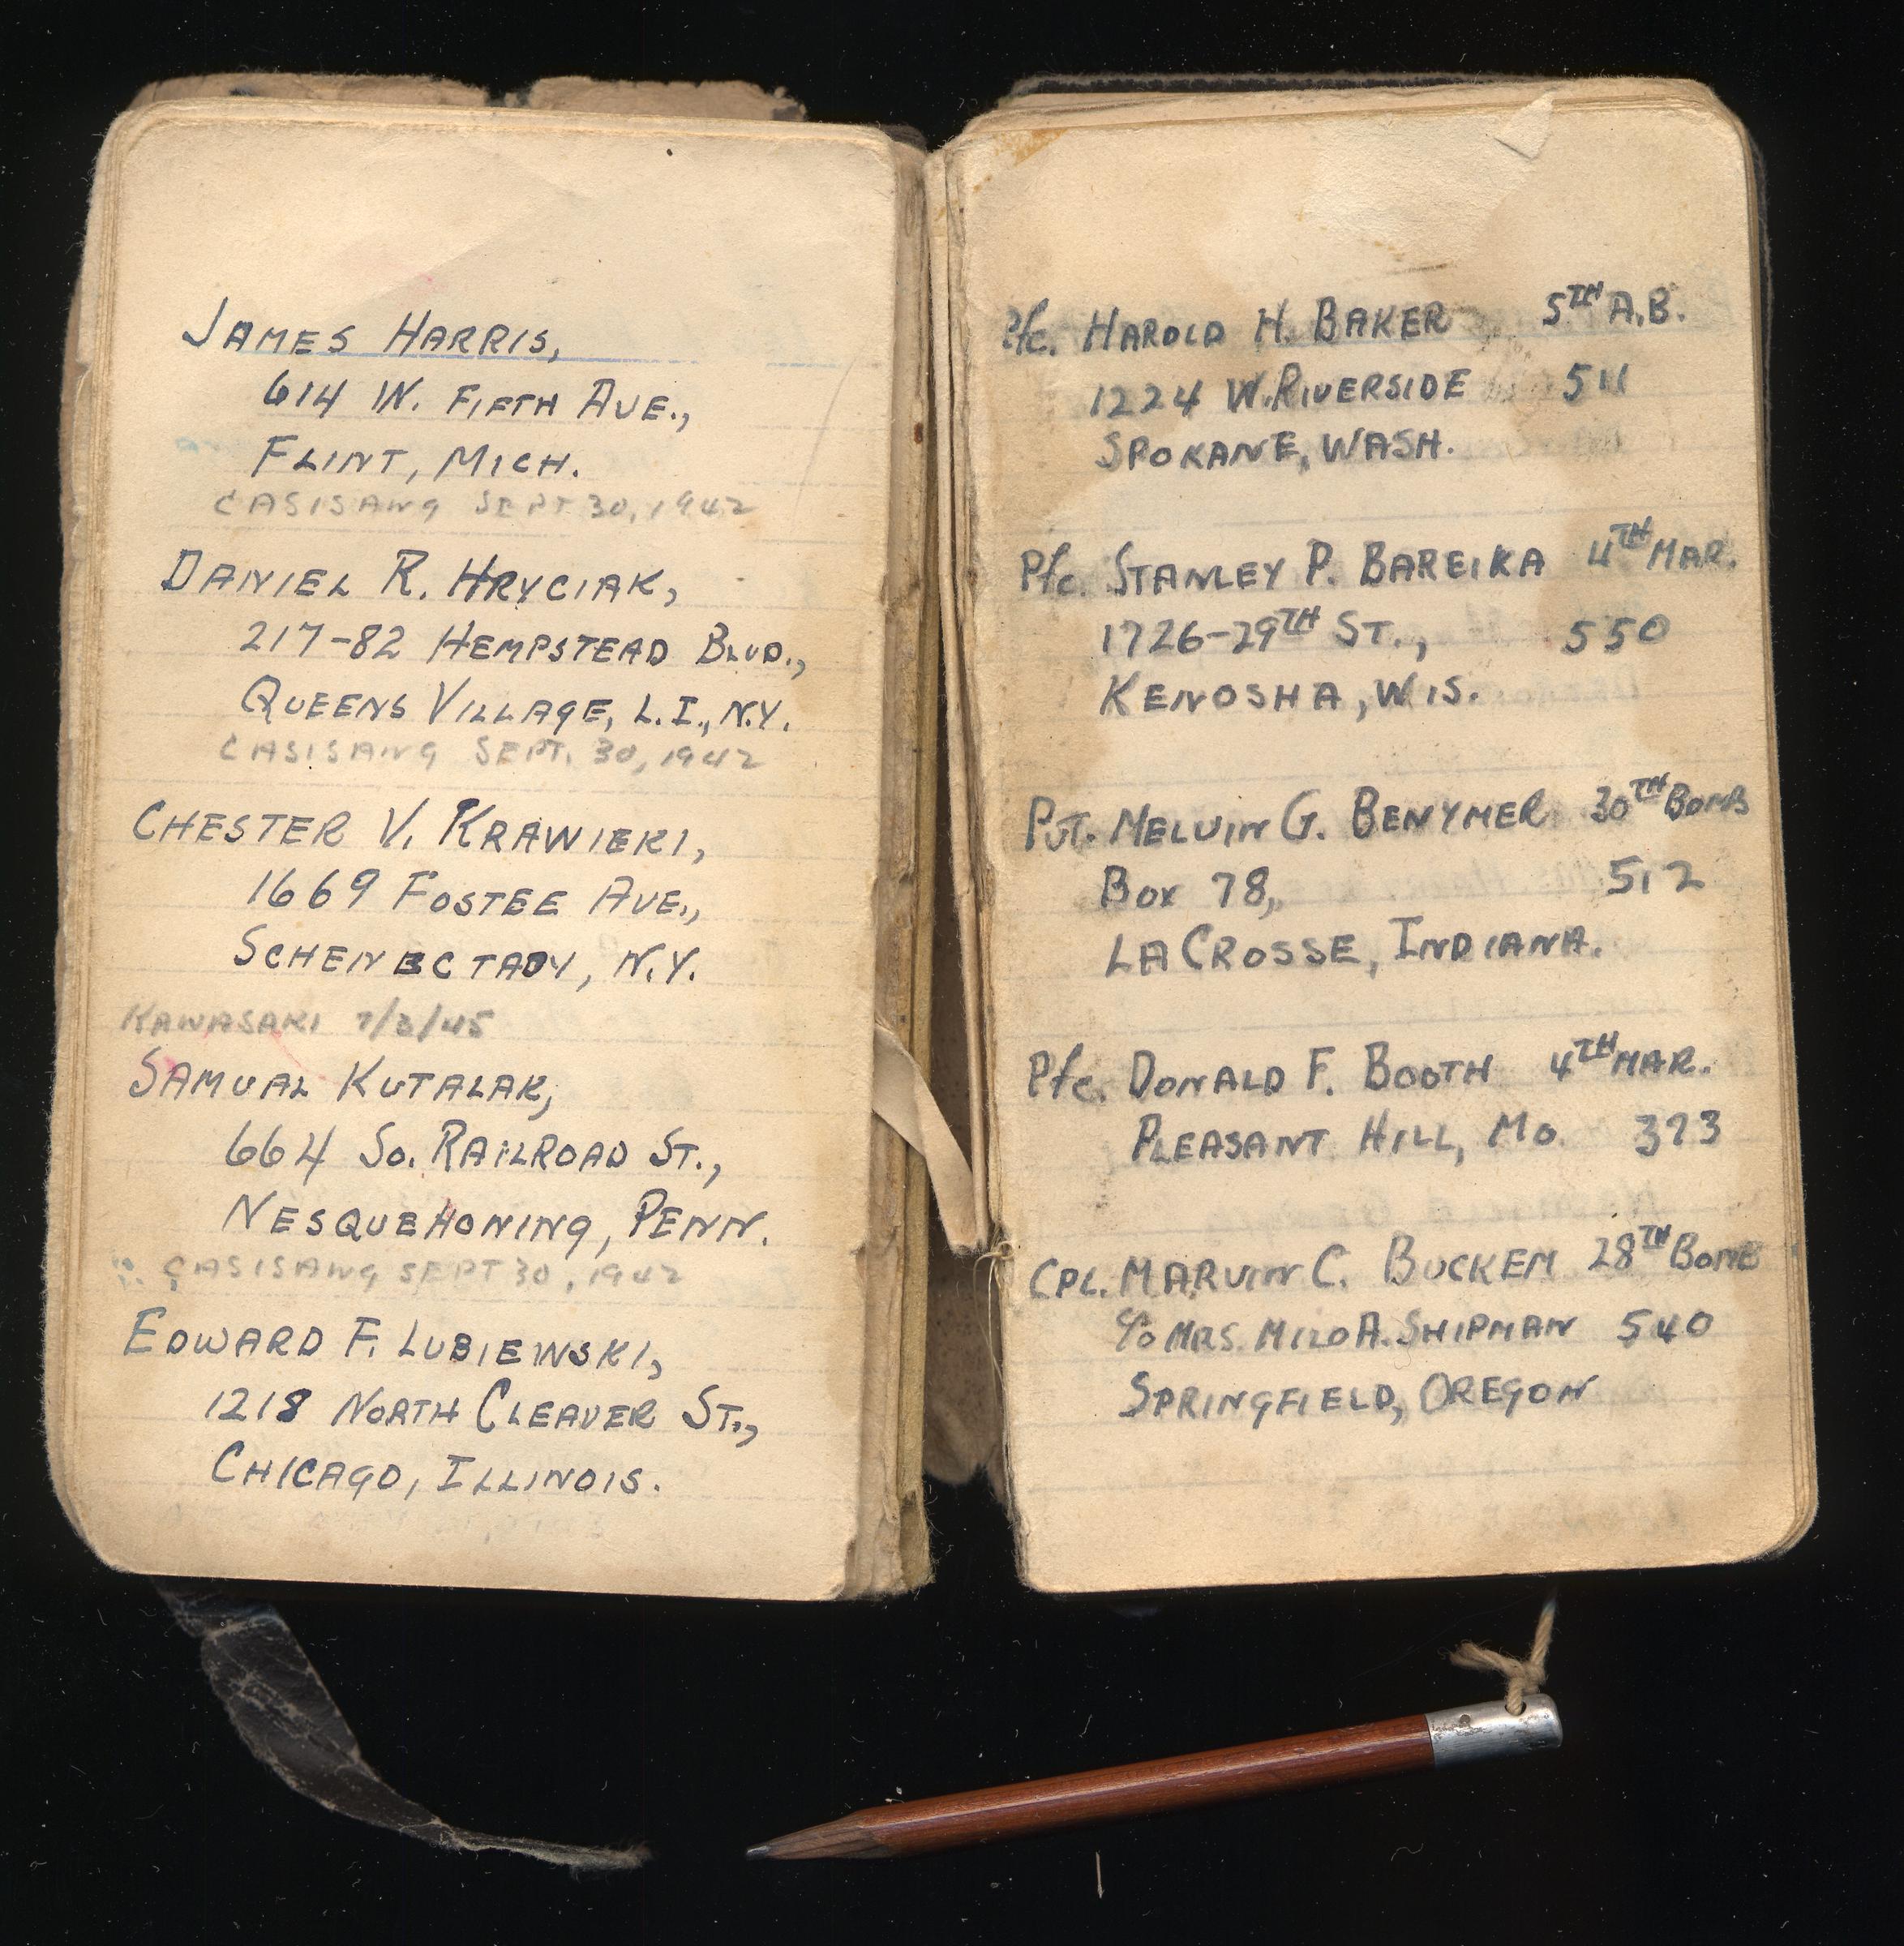 JAMES HARRIS,
614 W. FIFTH AVE.,
FLINT, MICH.
CASISANG SEPT 30, 1942
DANIEL R. HRYCIAK,
217-82 HEMPSTEAD BLVD.,
QUEENS VILLAGE, L.I., N.Y.
CASISANG SEPT. 30, 1942
CHESTER V. KRAWIEKI,
1669 FOSTEE AVE.,
SCHENECTADY, N.Y.
KAWASAKI 7/3/45
SAMUAL KUTALAK,
664 SO. RAILROAD ST.,
NESQUEHONING, PENN.
CASISANG SEPT 30, 1942
EDWARD F. LUBIEWSKI,
1218 NORTH CLEAVER ST.,
CHICAGO, ILLINOIS.
Pfc. HAROLD H. BAKER 5TH A.B.
1224 W. RIVERSIDE 511
SPOKANE, WASH.
Pfc. STANLEY P. BAREIKA 4TH MAR.
1726-29TH ST., 550
KENOSHA, WIS.
PVT. MELVIN G. BENYMER 30TH BOMB
BOX 78, 512
LA CROSSE, INDIANA.
Pfc. DONALD F. BOOTH 4TH MAR.
PLEASANT HILL, MO. 373
CPL. MARVIN C. BUCKEM 28TH BOMB
c/o MRS. MILO A. SHIPMAN 540
SPRINGFIELD, OREGON